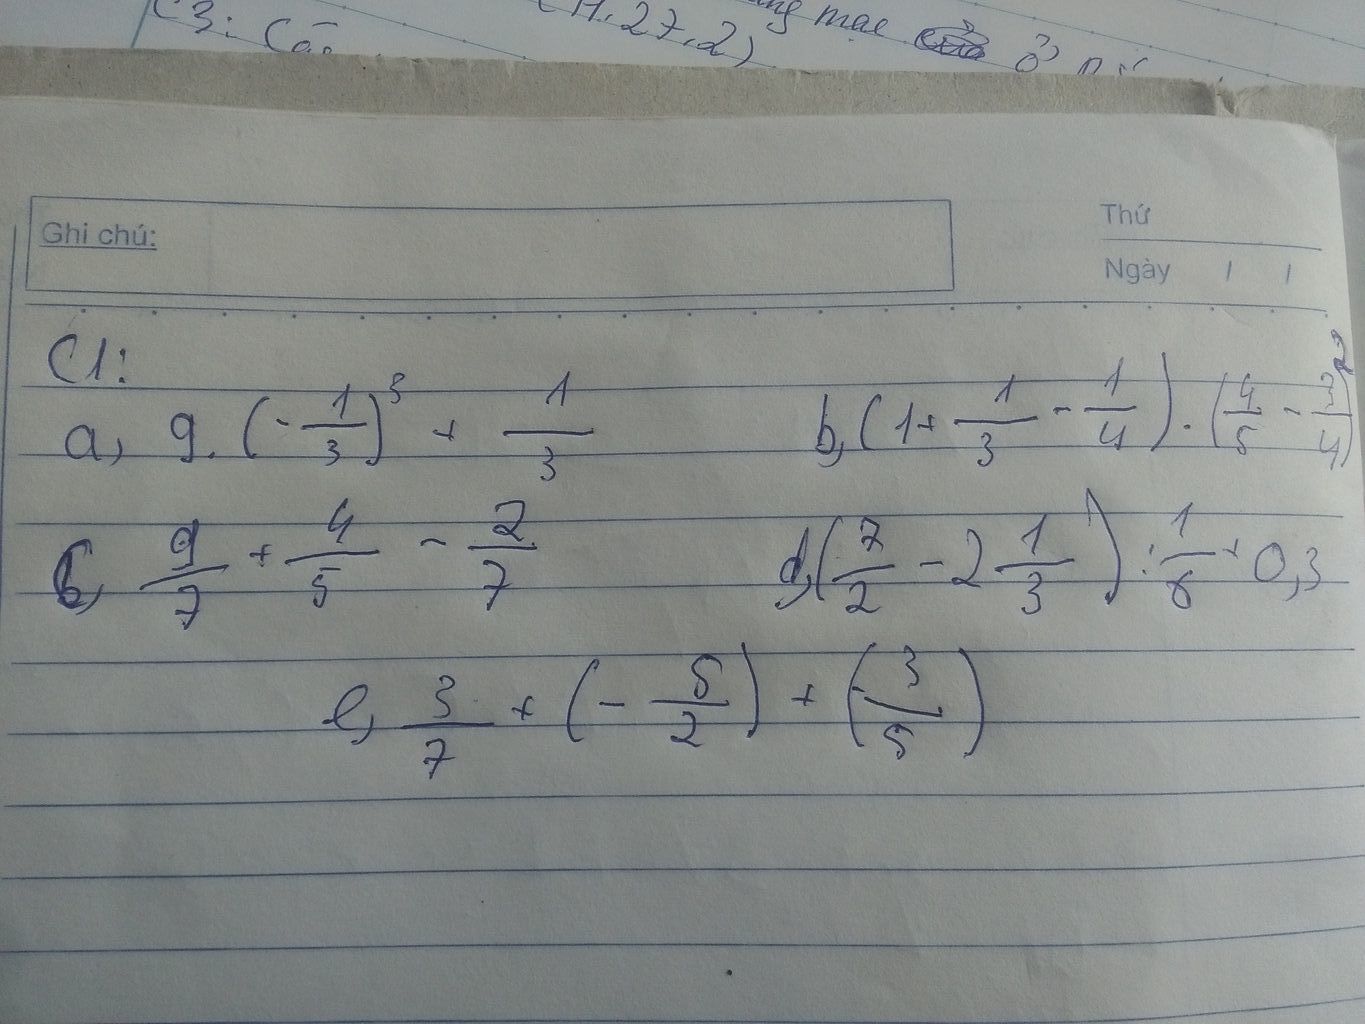 C3: Câ
(11.27.2)
ng mạc ở
Ghi chú:
Thứ
Ngày / /
C1:
a, 9. (-1/3)^3 + 1/3
b, (1 + 1/3 - 1/4) . (4/5 - 3/4)^2
c, 9/7 + 4/5 - 2/7
d, (7/2 - 2 1/3) : 1/6 + 0,3
e, 3/7 + (- 5/2) + (-3/5)